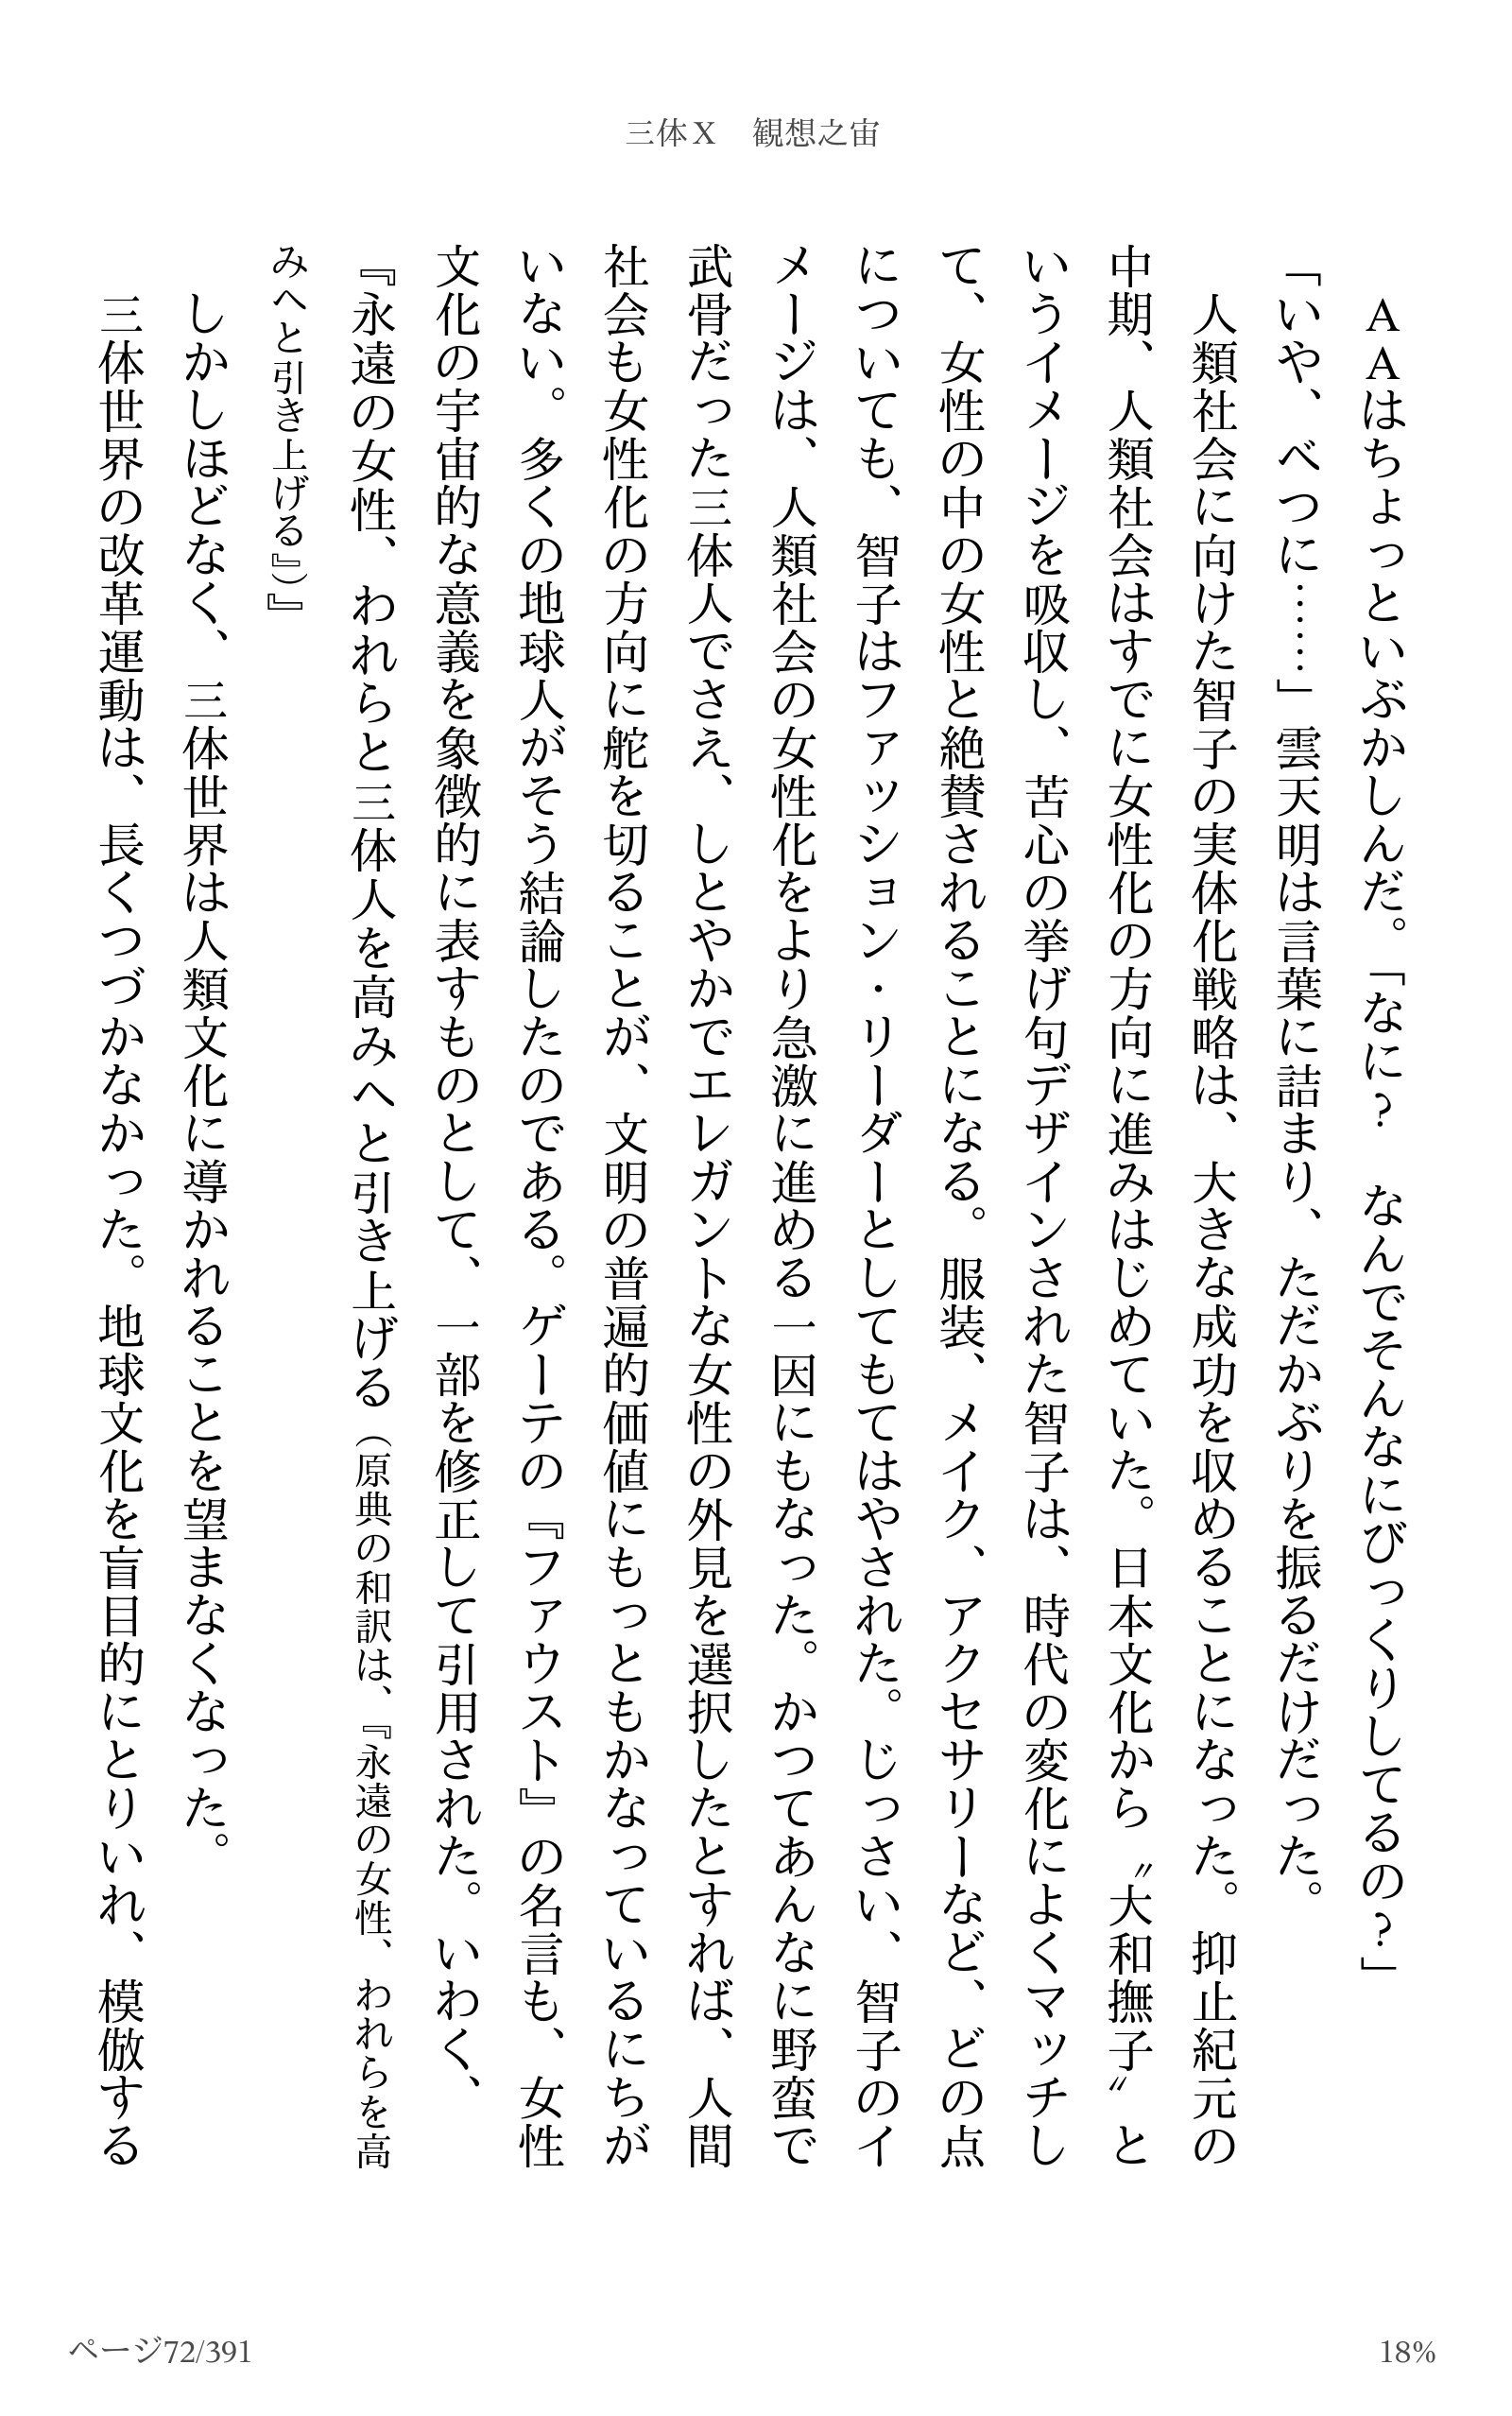 三体X　観想之宙
　ＡＡはちょっといぶかしんだ。「なに？　なんでそんなにびっくりしてるの？」
「いや、べつに……」雲天明は言葉に詰まり、ただかぶりを振るだけだった。
　人類社会に向けた智子の実体化戦略は、大きな成功を収めることになった。抑止紀元の
中期、人類社会はすでに女性化の方向に進みはじめていた。日本文化から〝大和撫子〟と
いうイメージを吸収し、苦心の挙げ句デザインされた智子は、時代の変化によくマッチし
て、女性の中の女性と絶賛されることになる。服装、メイク、アクセサリーなど、どの点
についても、智子はファッション・リーダーとしてもてはやされた。じっさい、智子のイ
メージは、人類社会の女性化をより急激に進める一因にもなった。かつてあんなに野蛮で
武骨だった三体人でさえ、しとやかでエレガントな女性の外見を選択したとすれば、人間
社会も女性化の方向に舵を切ることが、文明の普遍的価値にもっともかなっているにちが
いない。多くの地球人がそう結論したのである。ゲーテの『ファウスト』の名言も、女性
文化の宇宙的な意義を象徴的に表すものとして、一部を修正して引用された。いわく、
『永遠の女性、われらと三体人を高みへと引き上げる（原典の和訳は、『永遠の女性、われらを高
みへと引き上げる』）』
　しかしほどなく、三体世界は人類文化に導かれることを望まなくなった。
　三体世界の改革運動は、長くつづかなかった。地球文化を盲目的にとりいれ、模倣する
ページ72/391
18%